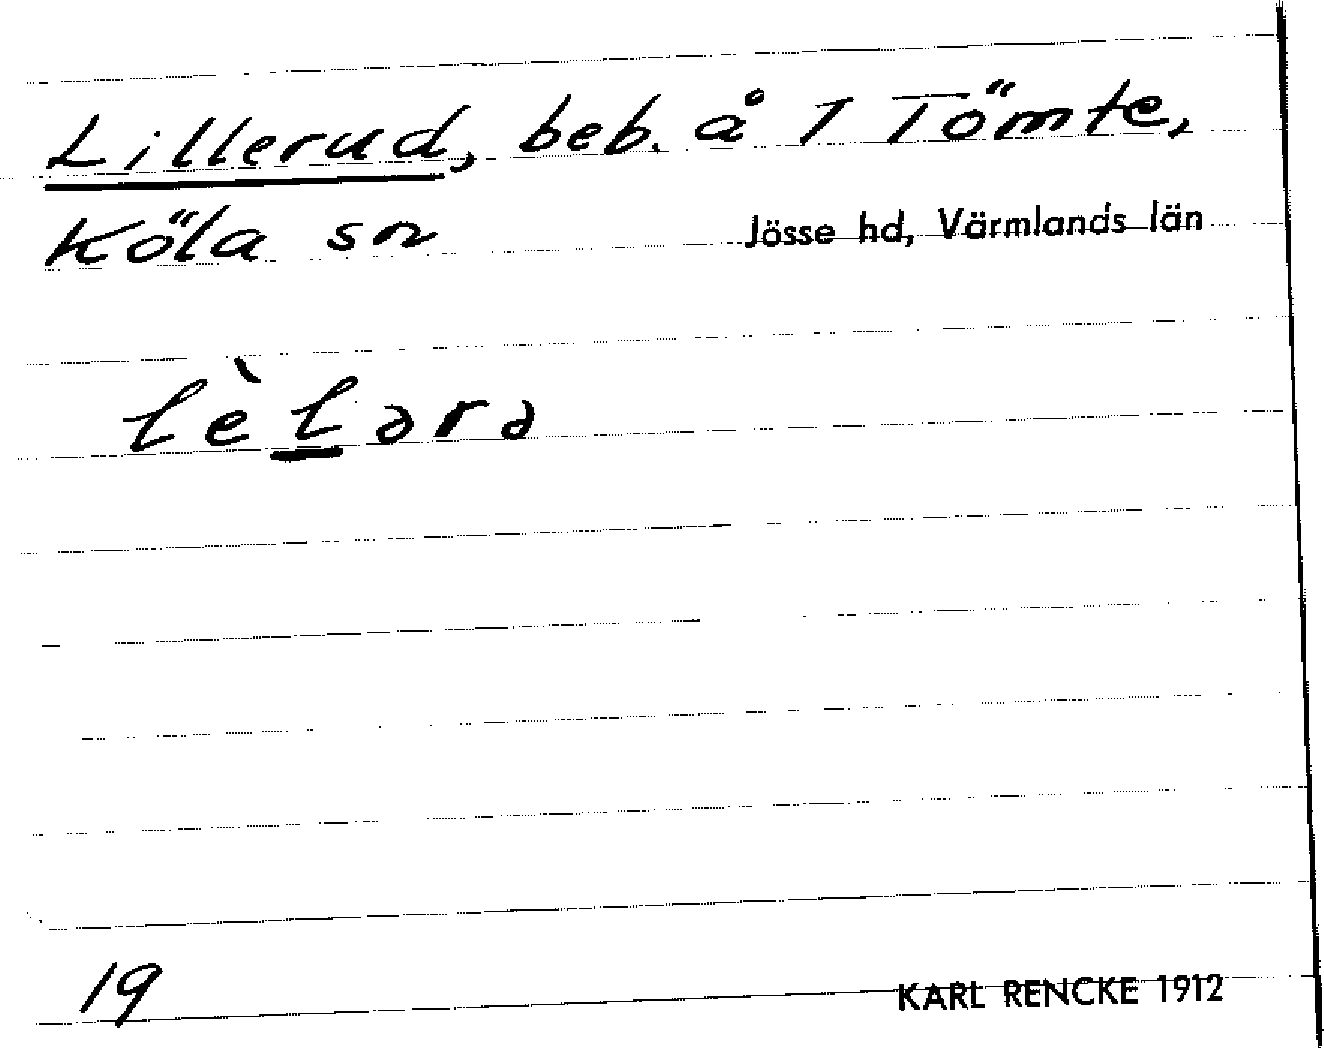 Lillerud, beb. å 1 Tömte,
Köla sn Jösse hd, Värmlands län
lèl̲ərə
19 KARL RENCKE 1912